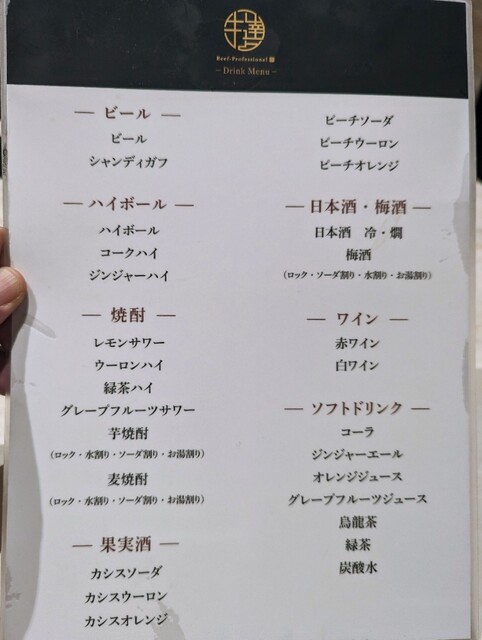 牛達
Beef-Professional
– Drink Menu –
― ビール ―
ビール
シャンディガフ
― ハイボール ―
ハイボール
コークハイ
ジンジャーハイ
― 焼酎 ―
レモンサワー
ウーロンハイ
緑茶ハイ
グレープフルーツサワー
芋焼酎
(ロック・水割り・ソーダ割り・お湯割り)
麦焼酎
(ロック・水割り・ソーダ割り・お湯割り)
― 果実酒 ―
カシスソーダ
カシスウーロン
カシスオレンジ
ピーチソーダ
ピーチウーロン
ピーチオレンジ
― 日本酒・梅酒 ―
日本酒　冷・燗
梅酒
(ロック・ソーダ割り・水割り・お湯割り)
― ワイン ―
赤ワイン
白ワイン
― ソフトドリンク ―
コーラ
ジンジャーエール
オレンジジュース
グレープフルーツジュース
烏龍茶
緑茶
炭酸水